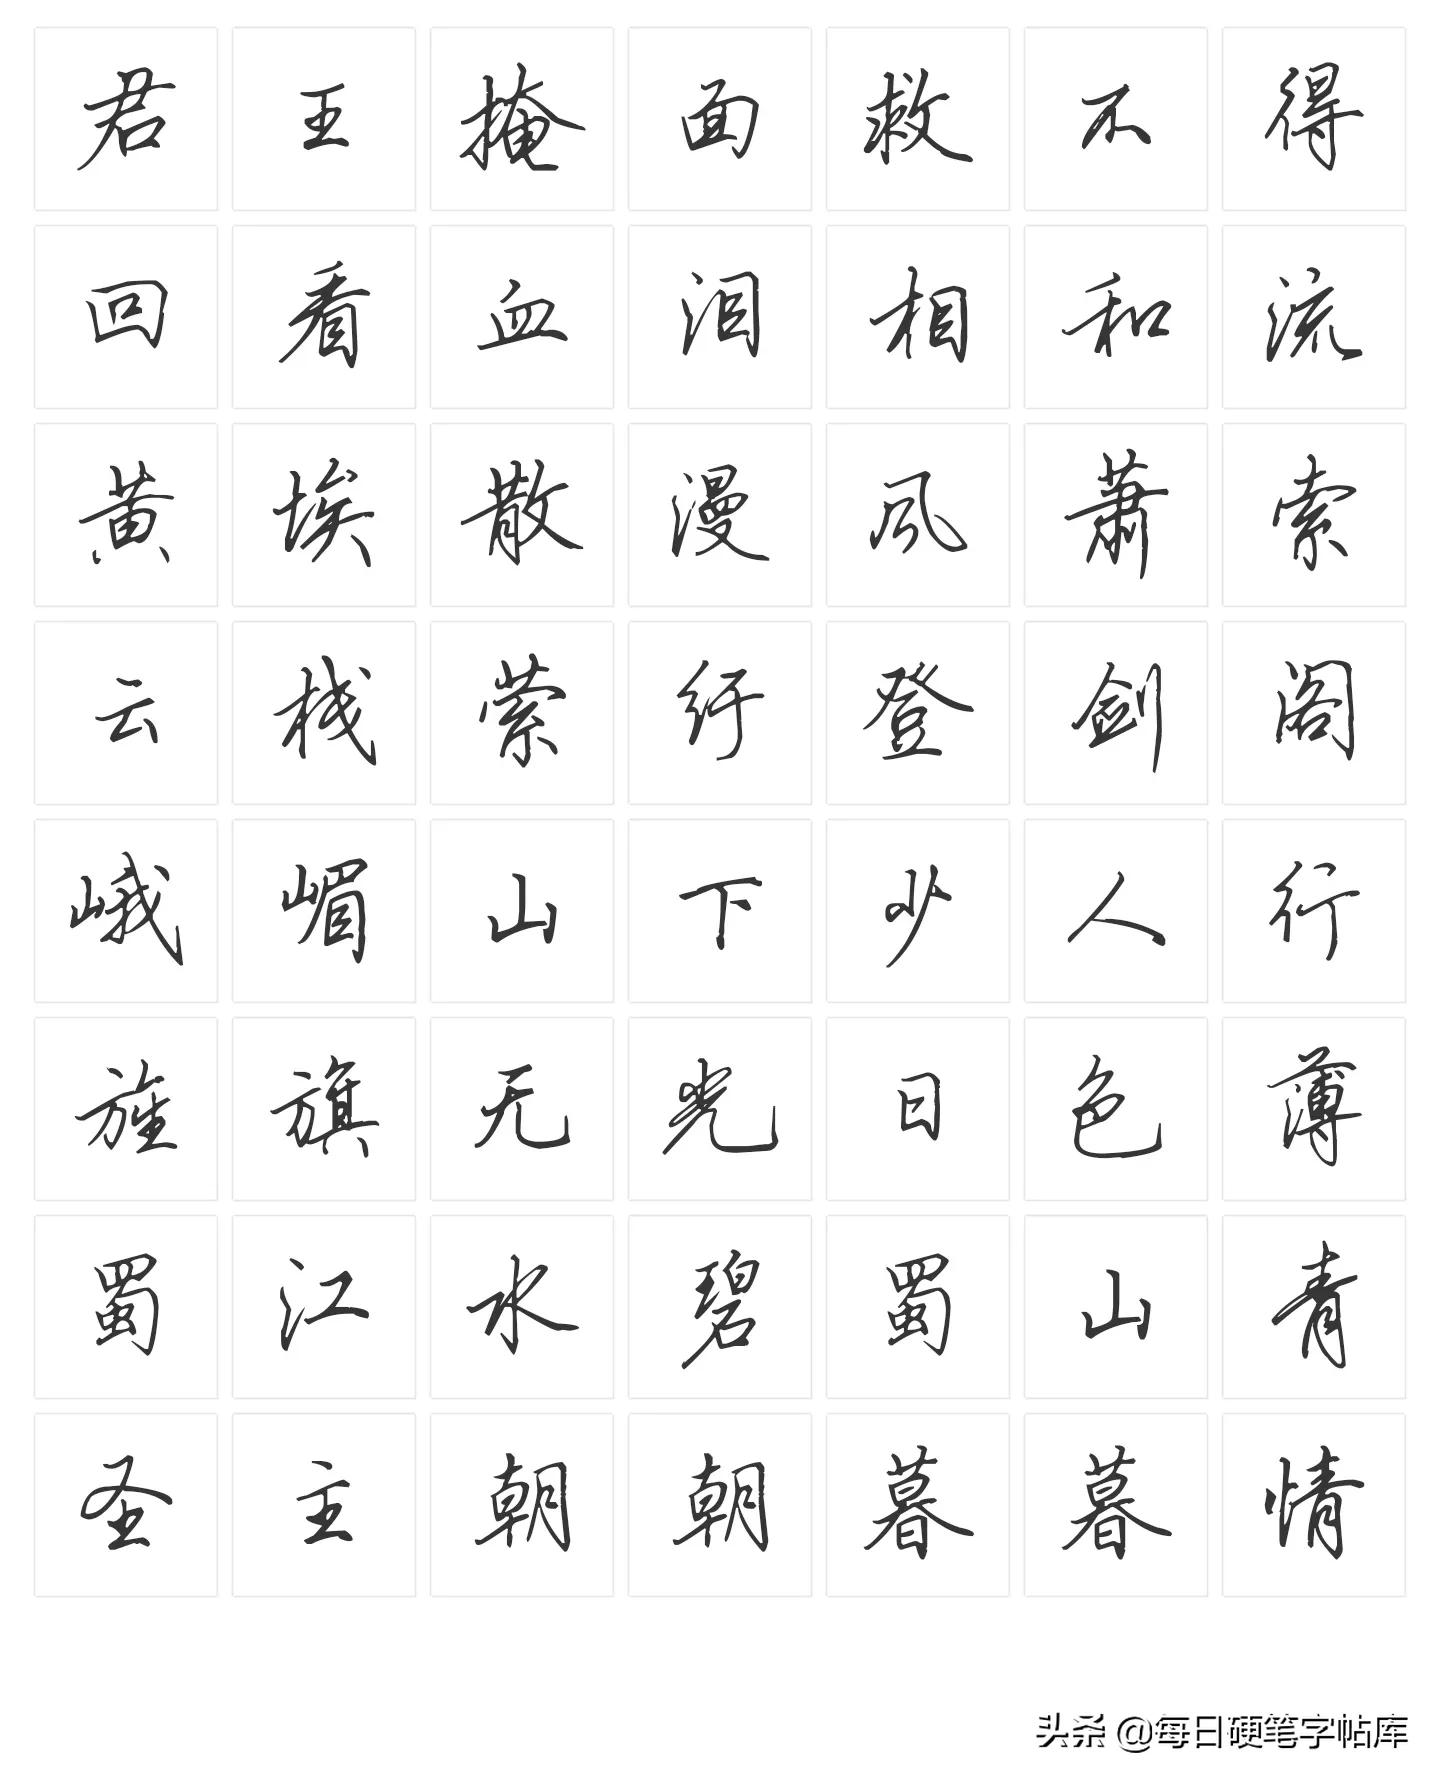 君王掩面救不得
回看血泪相和流
黄埃散漫风萧索
云栈萦纡登剑阁
峨嵋山下少人行
旌旗无光日色薄
蜀江水碧蜀山青
圣主朝朝暮暮情
头条 @每日硬笔字帖库